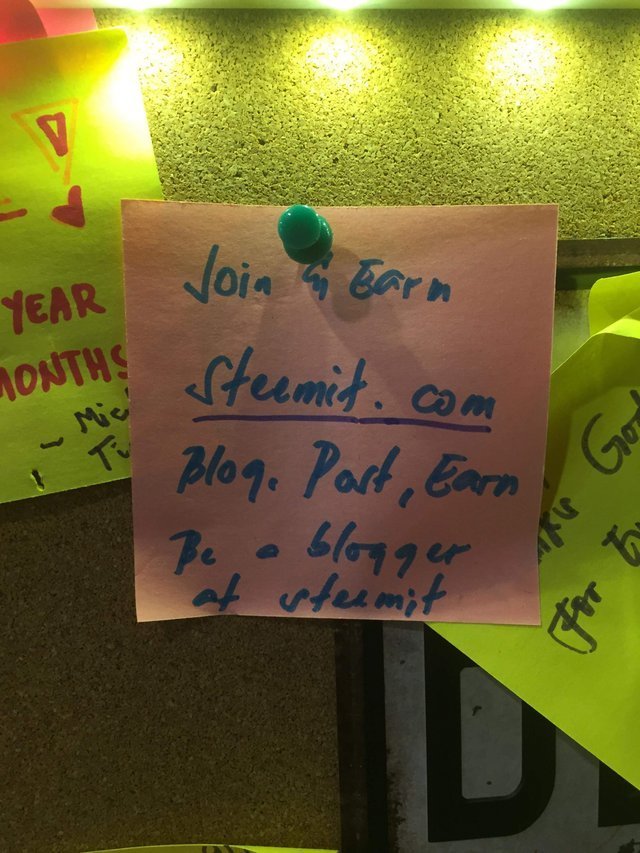 YEAR
MONTHS
Join & Earn
Steemit.com
Blog, Post, Earn
Be a blogger
at steemit
For